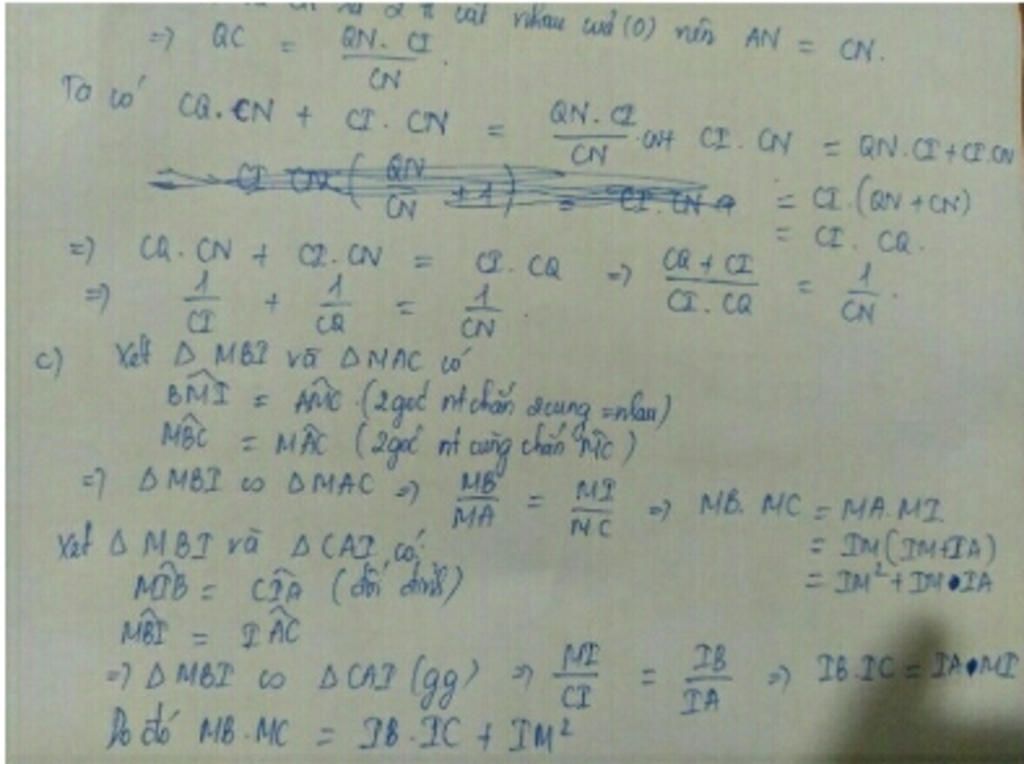 2 tt cắt nhau của (O) nên AN = CN.
=> QC = QN.CI / CN
Ta có CQ.CN + CI.CN = QN.CI / CN .CN + CI.CN = QN.CI + CI.CN
= CI.(QN + CN)
= CI.CQ.
=> CQ.CN + CI.CN = CI.CQ => CQ + CI / CI.CQ = 1 / CN.
=> 1 / CI + 1 / CQ = 1 / CN
c) Xét Δ MBI và Δ MAC có
BMI = AMC (2 góc nt chắn 2 cung = nhau)
MBC = MAC (2 góc nt cùng chắn MC)
=> Δ MBI ∽ Δ MAC => MB / MA = MI / MC => MB.MC = MA.MI
= IM(IM+IA)
= IM² + IM.IA
Xét Δ MBI và Δ CAI có:
MIB = CIA (đối đỉnh)
MBI = IAC
=> Δ MBI ∽ Δ CAI (gg) => MI / CI = IB / IA => IB.IC = IA.MI
Do đó MB.MC = IB.IC + IM²